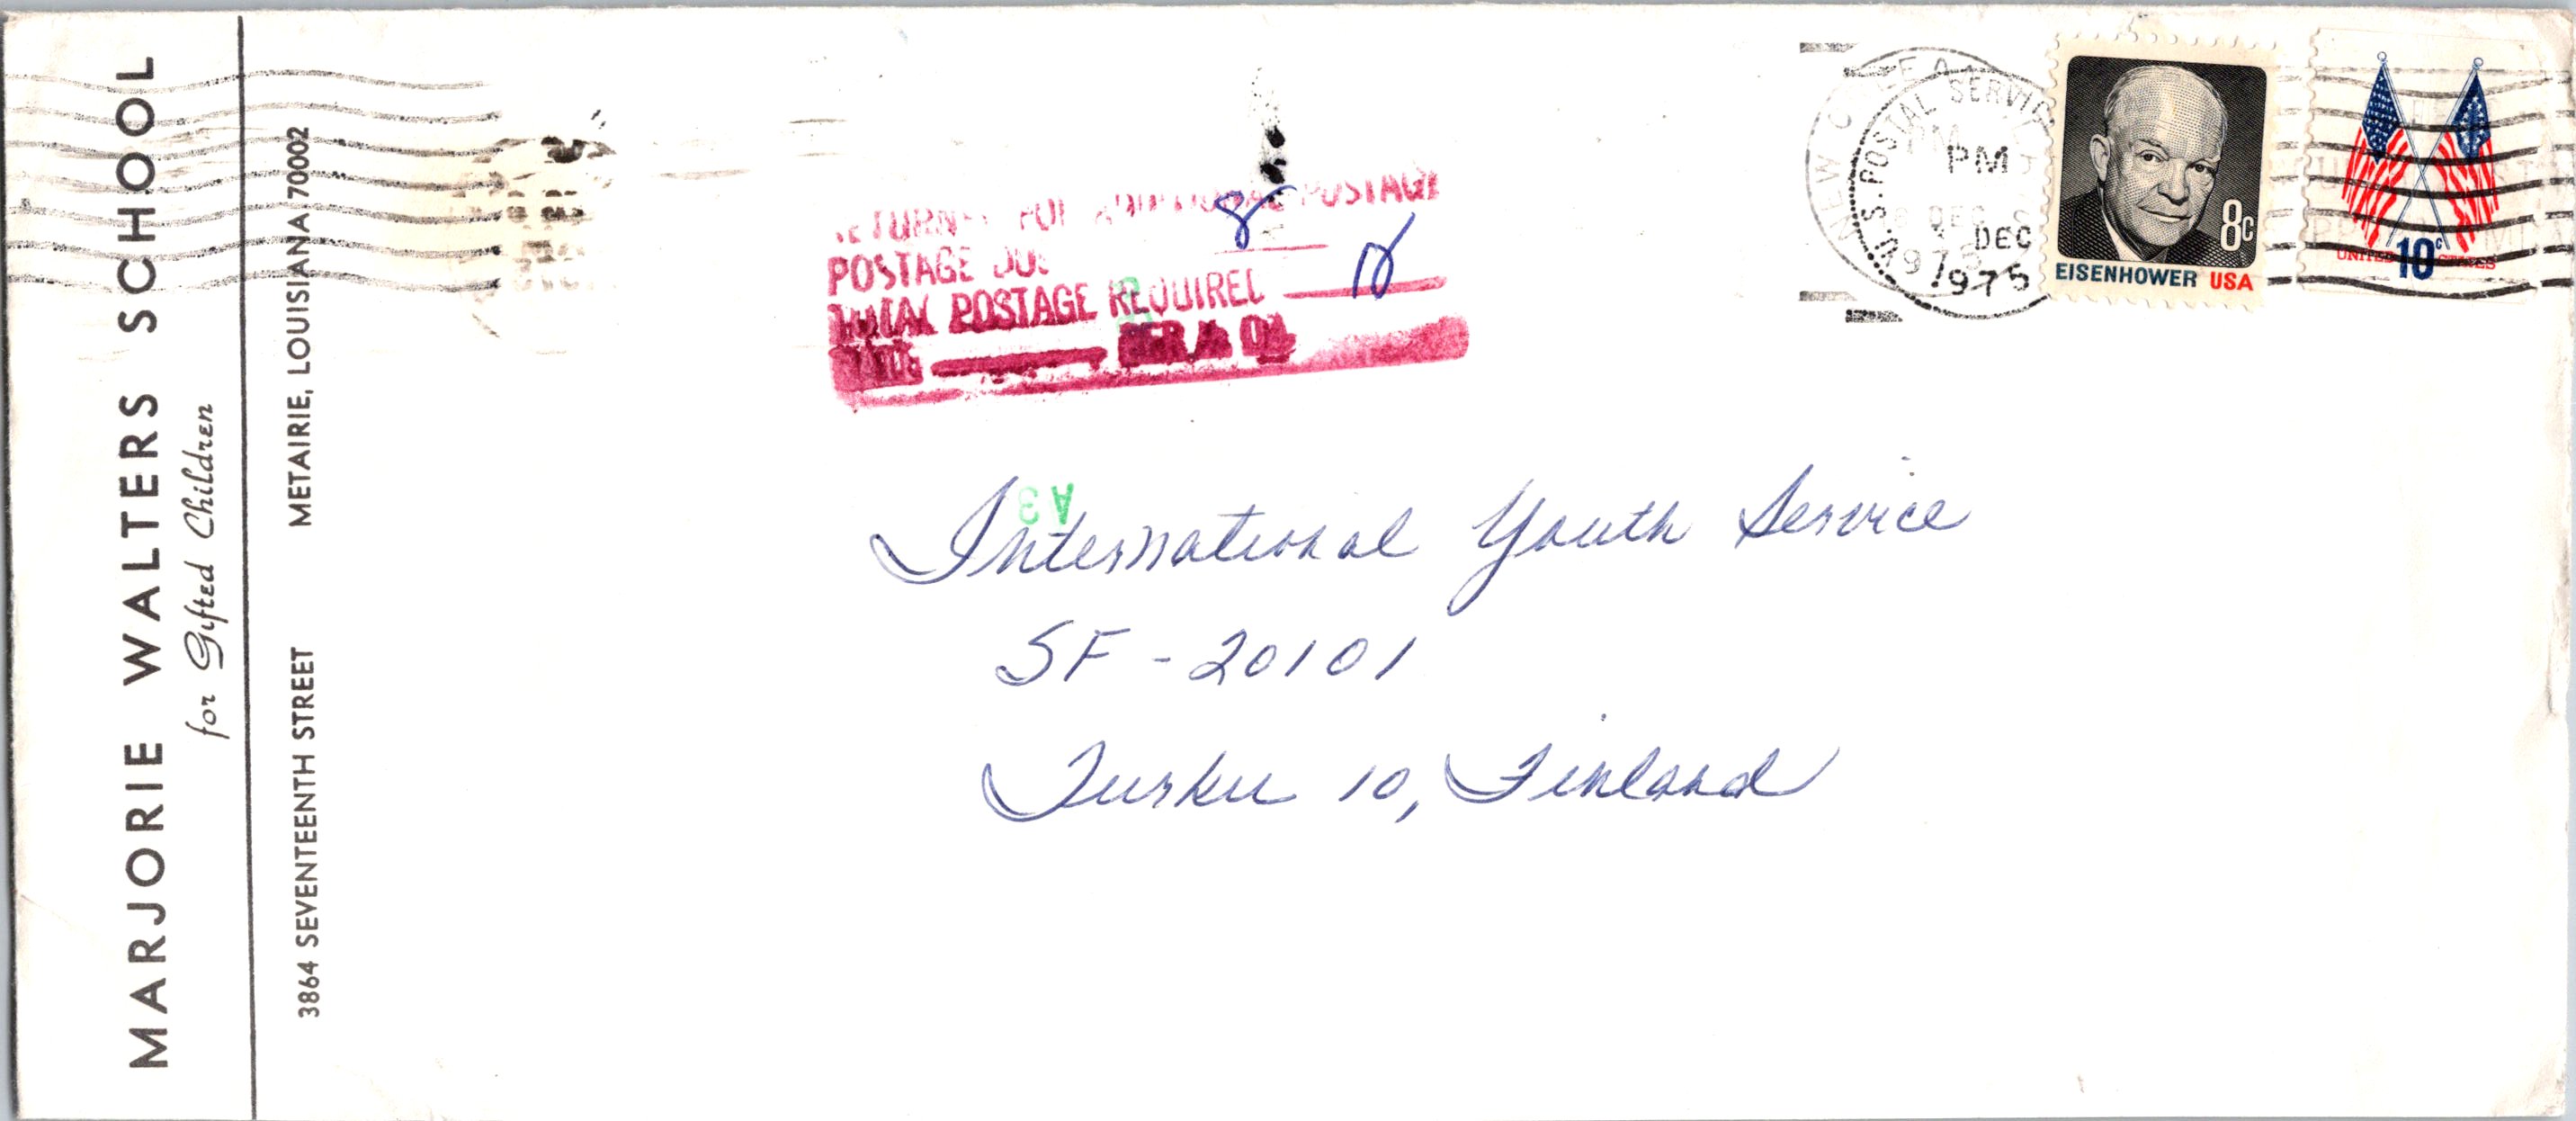 MARJORIE WALTERS SCHOOL
for Gifted Children
3864 SEVENTEENTH STREET METAIRIE, LOUISIANA 70002
POSTAGE
8
POSTAGE DUE
TOTAL POSTAGE REQUIRED
A 3
NEW
U.S. POSTAL SERVICE
PM
PM
DEC
DEC
1975
1975
8c
EISENHOWER USA
10c
UNITED STATES
International Youth Service
SF-20101
Turku 10, Finland